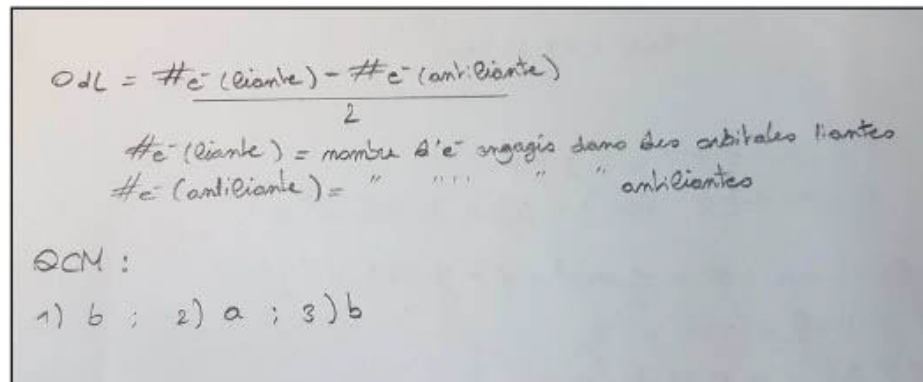 OdL = #e⁻ (liante) - #e⁻ (antiliante)
2
#e⁻ (liante) = nombre d'e⁻ engagés dans des orbitales liantes
#e⁻ (antiliante) = " " " " " antiliantes
QCM :
1) b ; 2) a ; 3) b